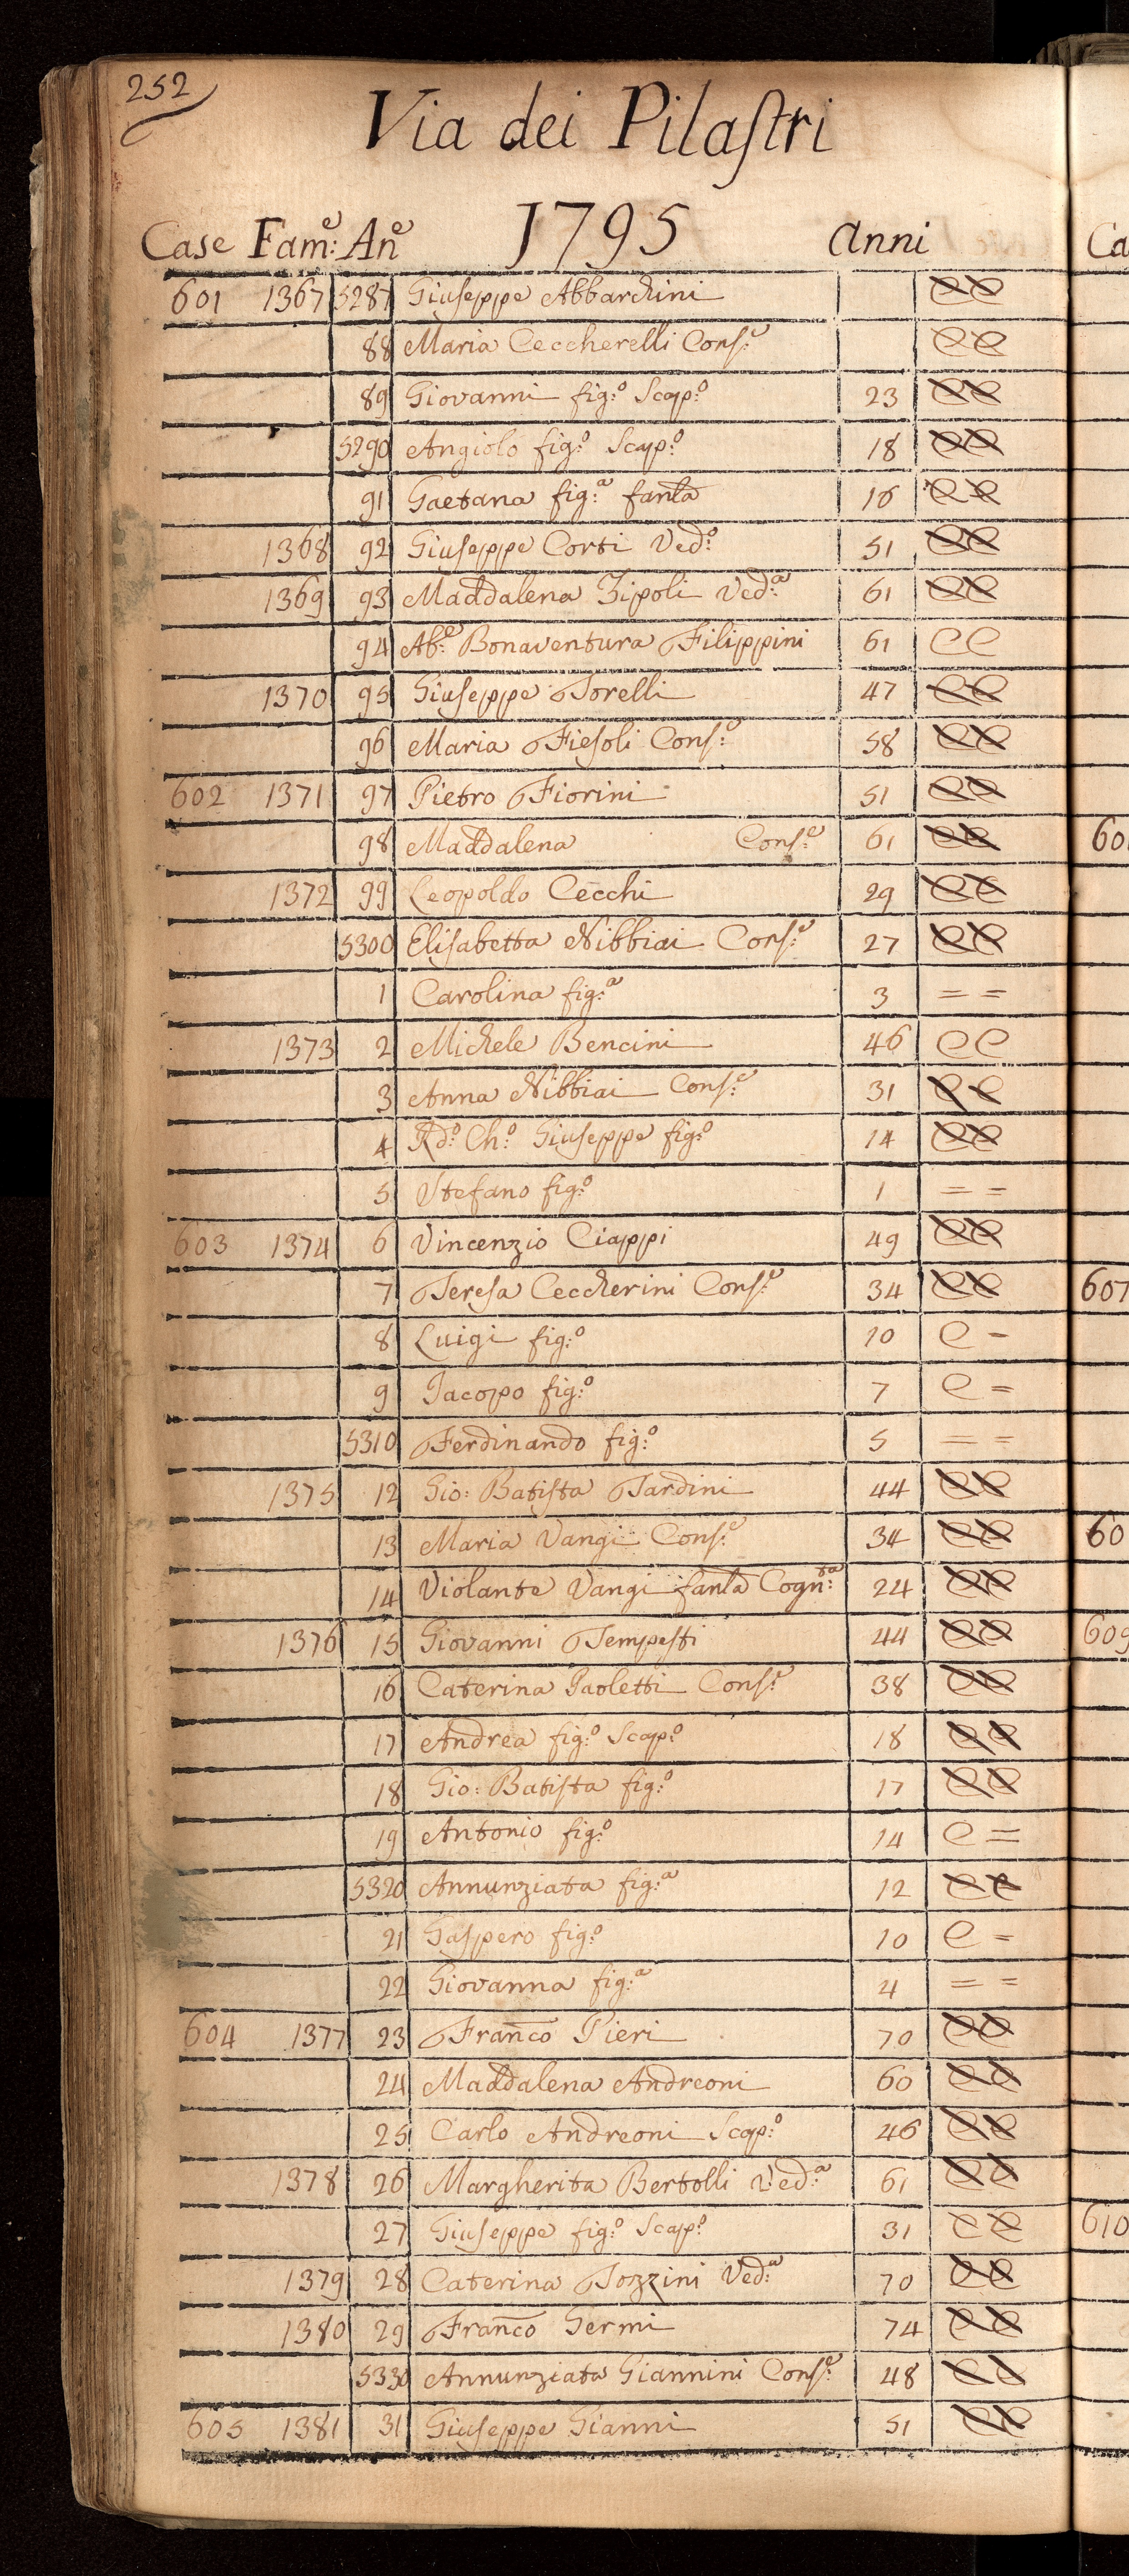 252
Via dei Pilaſtri
Case Fam:e An:e 1795 Anni
601 1367 5287 Giuſeppe Abbarchini
88 Maria Ceccherelli Conſ:e
89 Giovanni fig:o Scap:o 23
5290 Angiolo fig:o Scap:o 18
91 Gaetana fig:a fanla 16
1368 92 Giuſeppe Corti Ved:o 51
1369 93 Maddalena Zipoli Ved:a 61
94 Ab:e Bonaventura Filippini 61
1370 95 Giuſeppe Torelli 47
96 Maria Fieſoli Conſ:e 58
602 1371 97 Pietro Fiorini 51
98 Maddalena Conſ:e 61
1372 99 Leopoldo Cecchi 29
5300 Eliſabetta Nibbiai Conſ:e 27
1 Carolina fig:a 3 = =
1373 2 Michele Bencini 46
3 Anna Nibbiai Conſ:e 31
4 Rd:o Ch:o Giuſeppe fig:o 14
5 Stefano fig:o 1 = =
603 1374 6 Vincenzio Ciappi 49
7 Tereſa Ceccherini Conſ:e 34
8 Luigi fig:o 10 C -
9 Jacopo fig:o 7 C =
5310 Ferdinando fig:o 5 = =
1375 12 Gio: Batiſta Tardini 44
13 Maria Vangi Conſ:e 34
14 Violante Vangi fanla Cogn:ta 24
1376 15 Giovanni Tempeſti 44
16 Caterina Paoletti Conſ:e 38
17 Andrea fig:o Scap:o 18
18 Gio: Batiſta fig:o 17
19 Antonio fig:o 14 C =
5320 Annunziata fig:a 12
21 Gaſpero fig:o 10 C =
22 Giovanna fig:a 4 = =
604 1377 23 Franco Pieri 70
24 Maddalena Andreoni 60
25 Carlo Andreoni Scap:o 46
1378 26 Margherita Bertolli Ved:a 61
27 Giuſeppe fig:o Scap:o 31
1379 28 Caterina Tozzini Ved:a 70
1380 29 Franco Germi 74
5330 Annunziata Giannini Conſ:e 48
605 1381 31 Giuſeppe Gianni 51
Ca
607
609
610